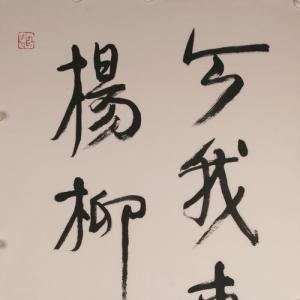 今我
楊柳